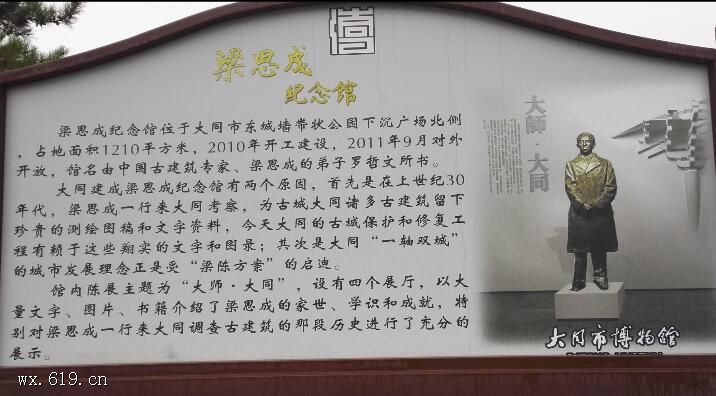 梁思成
纪念馆
梁思成纪念馆位于大同市东城墙带状公园下沉广场北侧
，占地面积1210平方米，2010年开工建设，2011年9月对外
开放，馆名由中国古建筑专家、梁思成的弟子罗哲文所书。
大同建成梁思成纪念馆有两个原因，首先是在上世纪30
年代，梁思成一行来大同考察，为古城大同诸多古建筑留下
珍贵的测绘图稿和文字资料，今天大同的古城保护和修复工
程有赖于这些翔实的文字和图录；其次是大同“一轴双城”
的城市发展理念正是受“梁陈方案”的启迪。
馆内陈展主题为“大师·大同”，设有四个展厅，以大
量文字、图片、书籍介绍了梁思成的家世、学识和成就，特
别对梁思成一行来大同调查古建筑的那段历史进行了充分的
展示。
大師·大同
大同市博物馆
wx.619.cn